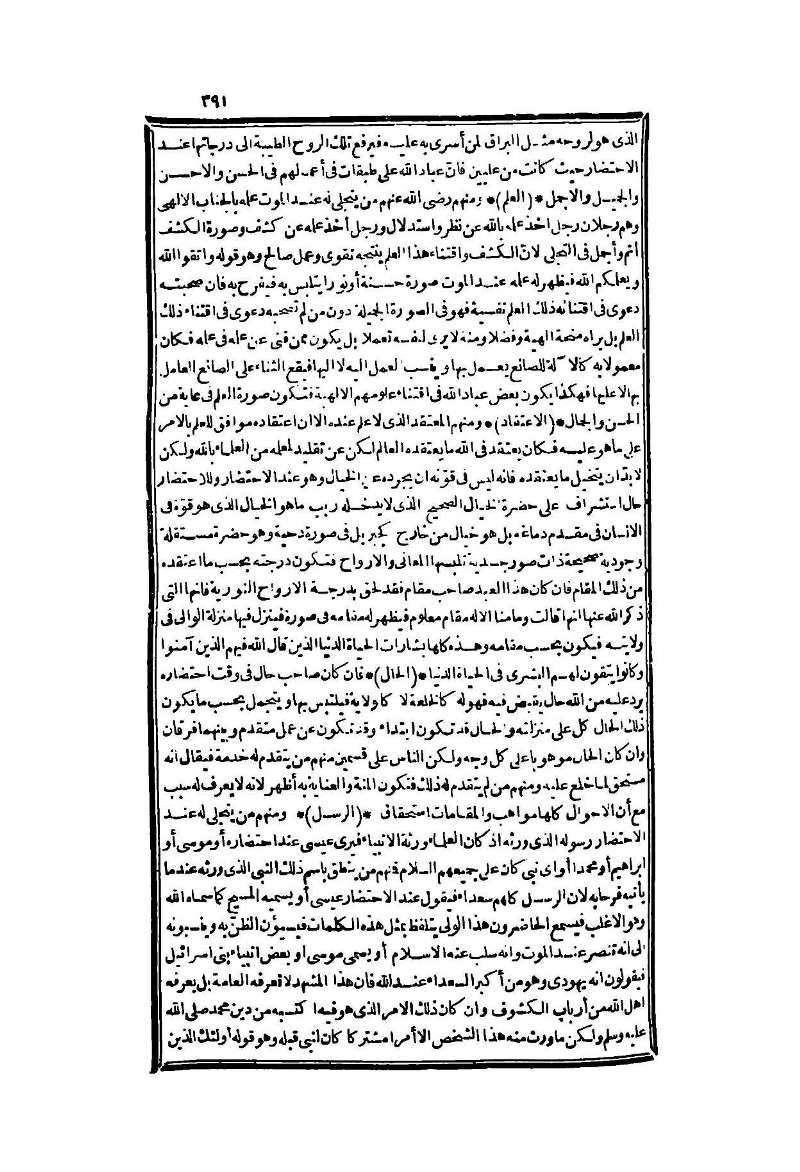 ٣٩١
الذى هو لروحه مثل البراق لمن أسرى به عليه فيرفع تلك الروح الطيبة الى درجاتها عند
الاحتضار حيث كانت من عليين فان عباد الله على طبقات فى أعمالهم فى الحسن والاحسن
والجميل والاجمل *(العلم)* ومنهم رضى الله عنهم من يتجلى له عند الموت علمه بالجناب الالهى
وهم رجلان رجل أخذ علمه بالله عن نظر واستدلال ورجل أخذ علمه عن كشف وصورة الكشف
أتم وأجمل فى التجلى لان الكشف واقتناء هذا العلم ينتجه تقوى وعمل صالح وهو قوله واتقوا الله
ويعلمكم الله فيظهر له علمه عند الموت صورة حسنة أو نورا يتلبس به فيفرح به فان صحبته
دعوى فى اقتنائه ذلك العلم نفسية فهو فى الصورة الجميلة دون من لم تصحبه دعوى فى اقتناء ذلك
العلم بل يراه منحة الهية وفضلا ومنة لا يرى لنفسه تعملا بل يكون ممن فنى عن عمله فى عمله فكان
معمولا به كالآلة للصانع يعمل بها وينسب العمل اليه لا اليها فيقع الثناء على الصانع العامل
بها لا عليها فهكذا يكون بعض عباد الله فى اقتناء علومهم الالهية فتكون صورة العلم فى غاية من
الحسن والجمال *(الاعتقاد)* ومنهم المعتقد الذى لا علم عنده الا ان اعتقاده موافق للعلم بالامر
على ما هو عليه فكان يعتقد فى الله ما يعتقده العالم لكن عن تقليد لمعلمه من العلماء بالله ولكن
لابد ان يتخيل ما يعتقده فانه ليس فى قوته ان يجرده عن الخيال وهو عند الاحتضار وللاحتضار
حال استشراف على حضرة الخيال الصحيح الذى لا يدخله ريب ما هو الخيال الذى هو قوة فى
الانسان فى مقدم دماغه بل هو خيال من خارج كجبريل فى صورة دحية وهو حضرة مستقلة
وجودية صحيحة ذات صور جسدية تلبسها المعانى والارواح فتكون درجته بحسب ما اعتقده
من ذلك المقام فان كان هذا العبد صاحب مقام فقد لحق بدرجة الارواح النورية فانها التى
ذكر الله عنها انها قالت وما منا الا له مقام معلوم فيظهر له مقامه فى صورة فينزل فيها منزلة الوالى فى
ولايته فيكون بحسب مقامه وهذه كلها بشارات الحياة الدنيا الذين قال الله فيهم الذين آمنوا
وكانوا يتقون لهم البشرى فى الحياة الدنيا *(الحال)* فان كان صاحب حال فى وقت احتضاره
يرد عليه من الله حال يقبض فيه فهو له كالخلعة لا كالولاية فيتلبس بها ويتجمل بحسب ما يكون
ذلك الحال كل على منزلته والحال قد تكون ابتداء وقد تكون عن عمل متقدم وبينهما فرقان
وان كان الحال موهوبا على كل وجه ولكن الناس على قسمين منهم من يتقدم له خدمة فيقال انه
مستحق لما خلع عليه ومنهم من لم يتقدم له ذلك فتكون المنة والعناية به أظهر لانه لا يعرف له سبب
مع أن الاحوال كلها مواهب والمقامات استحقاق *(الرسل)* ومنهم من يتجلى له عند
الاحتضار رسوله الذى ورثه اذ كان العلماء ورثة الانبياء فيرى عيسى عند احتضاره أو موسى أو
ابراهيم أو محمدا أو اى نبى كان على جميعهم السلام فمنهم من ينطق باسم ذلك النبى الذى ورثه عندما
يأتيه فرحا به لان الرسل كلهم سعداء فيقول عند الاحتضار عيسى أو يسميه المسيح كما سماه الله
وهو الاغلب فيسمع الحاضرون هذا الولى يتلفظ بمثل هذه الكلمات فيسيؤن الظن به وينسبونه
الى انه تنصر عند الموت وانه سلب عنه الاسلام أو يسمى موسى أو بعض انبياء بنى اسرائيل
فيقولون انه يهودى وهو من أكبر السعداء عند الله فان هذا المشهد لا تعرفه العامة بل يعرفه
اهل الله من أرباب الكشوف وان كان ذلك الامر الذى هو فيه اكتسبه من دين محمد صلى الله
عليه وسلم ولكن ما ورث منه هذا الشخص الا أمرا مشتركا كان لنبى قبله وهو قوله أولئك الذين